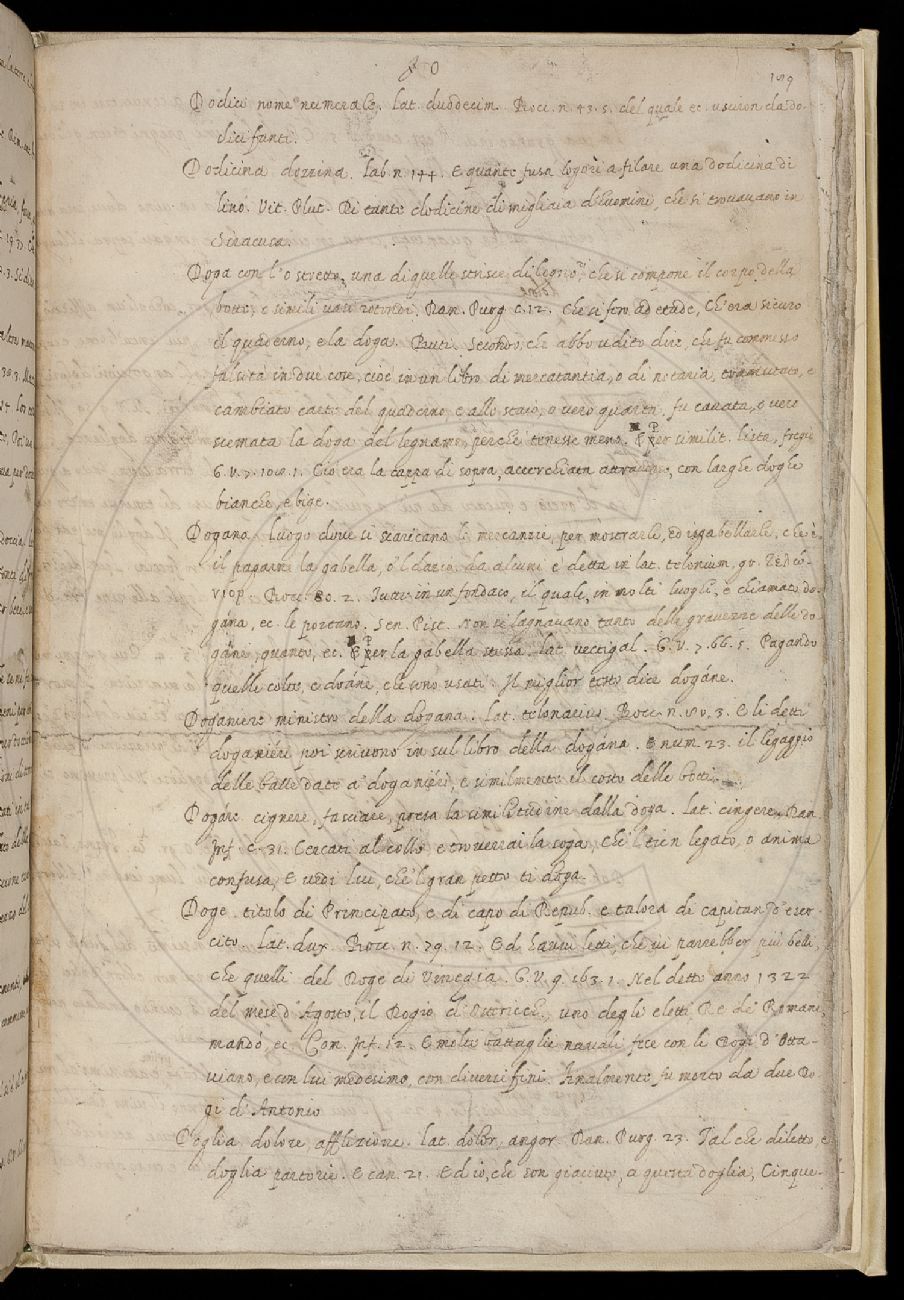 DO
189
Dodici nome numerale. lat. duodecim. Bocc. n. 43. 5. del quale ec. usciron da do-
dici fanti.
Dodicina dozzina. Lab. n. 144. E quante fusa logori a filare una dodicina di
lino. Vit. Plut. Di tante dodicine di migliaia d'huomini, che si trovavano in
Siracusa.
Doga con l'o stretto, una di quelle strisce di legno, di che si compone il corpo della
botte, e simili vasi rotondi. Dan. Purg. c. 12. Che si fero ad etade, Ch'era sicuro
il quaderno, e la doga. Buti. Secondo, che abbo udito dire, che fu commesso
falsità in due cose, cioè in un libro di mercatantia, o di notaria, tramutato, e
cambiato carte del quaderno, e allo staio, o vero quarta, fu cavata, o vero
scemata la doga del legname, perchè tenesse meno. P Per similit. lista, fregio
G. V. 7. 108. 1. Ciò era la cappa di sopra, accerchiata attraverso, con larghe doghe
bianche, e bige.
Dogana. Luogo dove si scaricano le mercanzie, per mostrarle, ed isgabellarle, che è
il pagarne la gabella, o 'l dazio. da alcuni è detta in lat. telonium, gr. τελώ-
νιον. Bocc. 80. 2. Ivi in un fondaco, il quale, in molti luoghi, è chiamato do-
gána, ec. le portano. Sen. Pist. Non si lagnavano tanto delle gravezze delle do-
gáne, quanto, ec. P Per la gabella stessa. lat. vectigal. G. V. 7. 66. 5. Pagando
quelle colte, e doáne, che sono usati. Il miglior testo dice dogáne.
Doganiere ministro della dogana. Lat. telonarius. Bocc. n. 80. 3. E li detti
doganiéri poi scrivono in sul libro della dogána. E num. 23. il legaggio
delle balle dato a' doganiéri, e similmente il costo delle botti.
Dogáre cignere, fasciare, presa la similitudine dalla doga. lat. cingere. Dan.
Inf. C. 31. Cercati al collo, e troverrai la soga, Che 'l tien legato, o anima
confusa, E vedi lui, che 'l gran petto ti doga.
Doge. titolo di Principato, e di capo di Repub. e talora di capitan d'eser-
cito. Lat. dux. Bocc. n. 79. 12. Ed havvi letti, che vi parrebber più belli,
che quelli del Doge di Vinegia. G. V. 9. 163. 1. Nel detto anno 1322
del mese d'Agosto, il Dogio d'Ostericchi, uno degli eletti Re de' Romani,
mandò, ec. Com. Inf. 12. E molte battaglie navali fece con li Dogi d'Otta-
viano, e con lui medesimo, con diversi fini. Finalmente fu morto da due Do-
gi di Antonio
Doglia dolore, afflizione. lat. dolor, angor. Dan. Purg. 23. Tal che diletto, e
doglia partorie. E can. 21. Ed io, che son giaciuto, a questa doglia, Cinque-